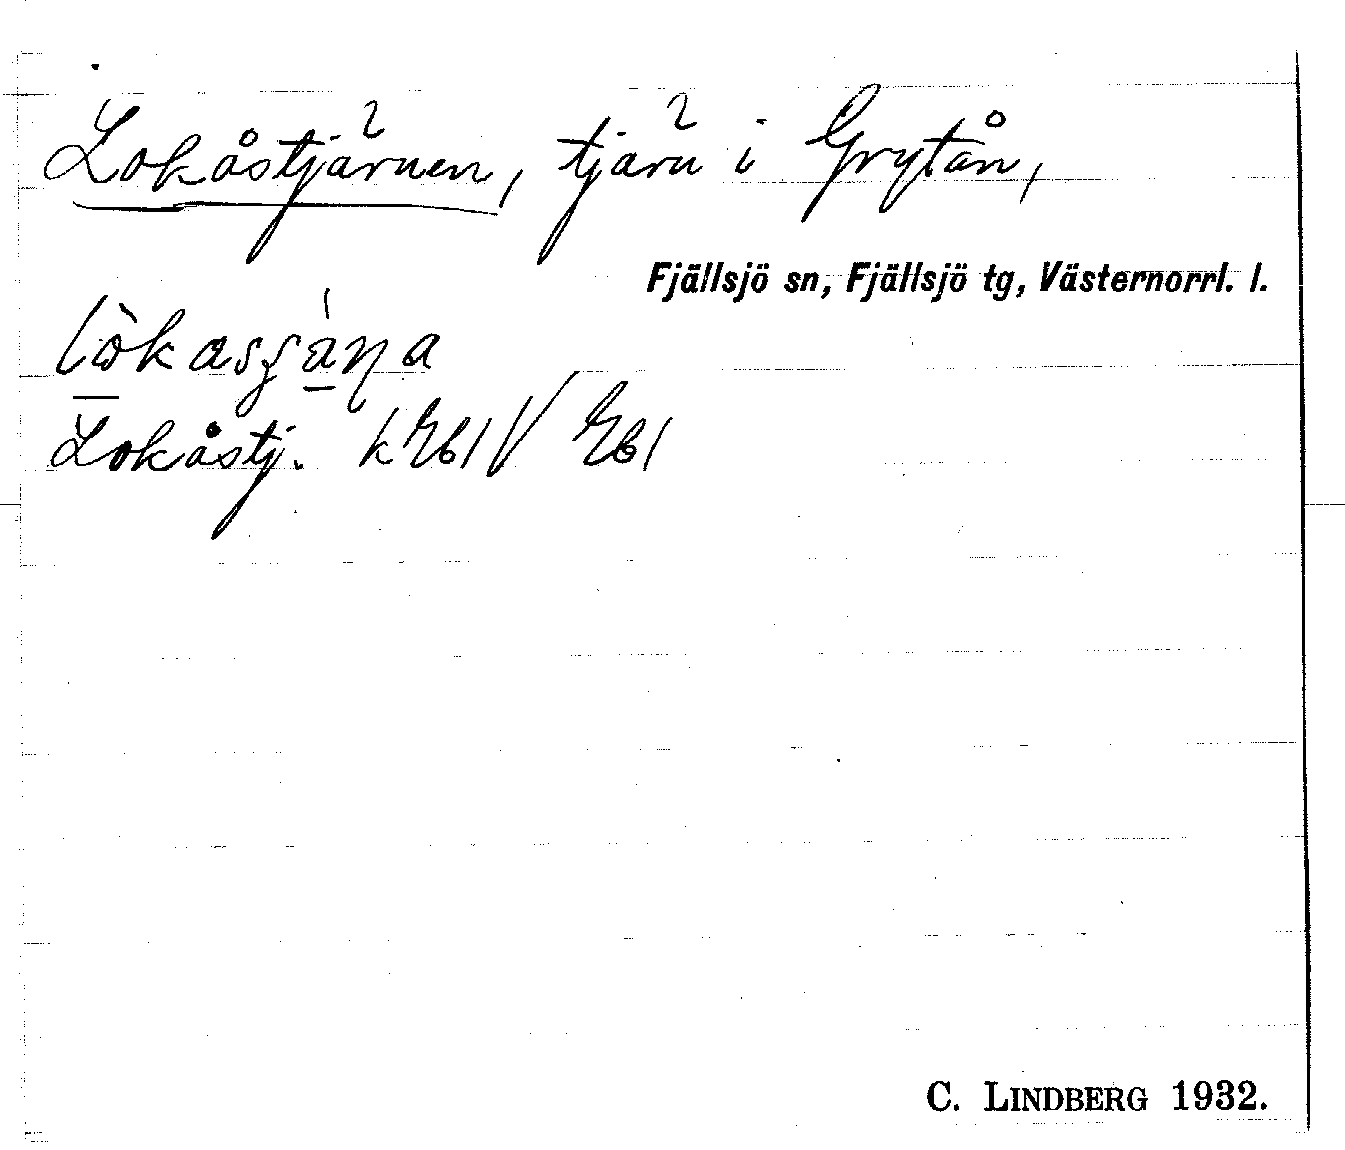 Lokåstjärnen, tjärn i Grytån,
Fjällsjö sn, Fjällsjö tg, Västernorrl. l.
Lokåstj.
C. LINDBERG 1932.